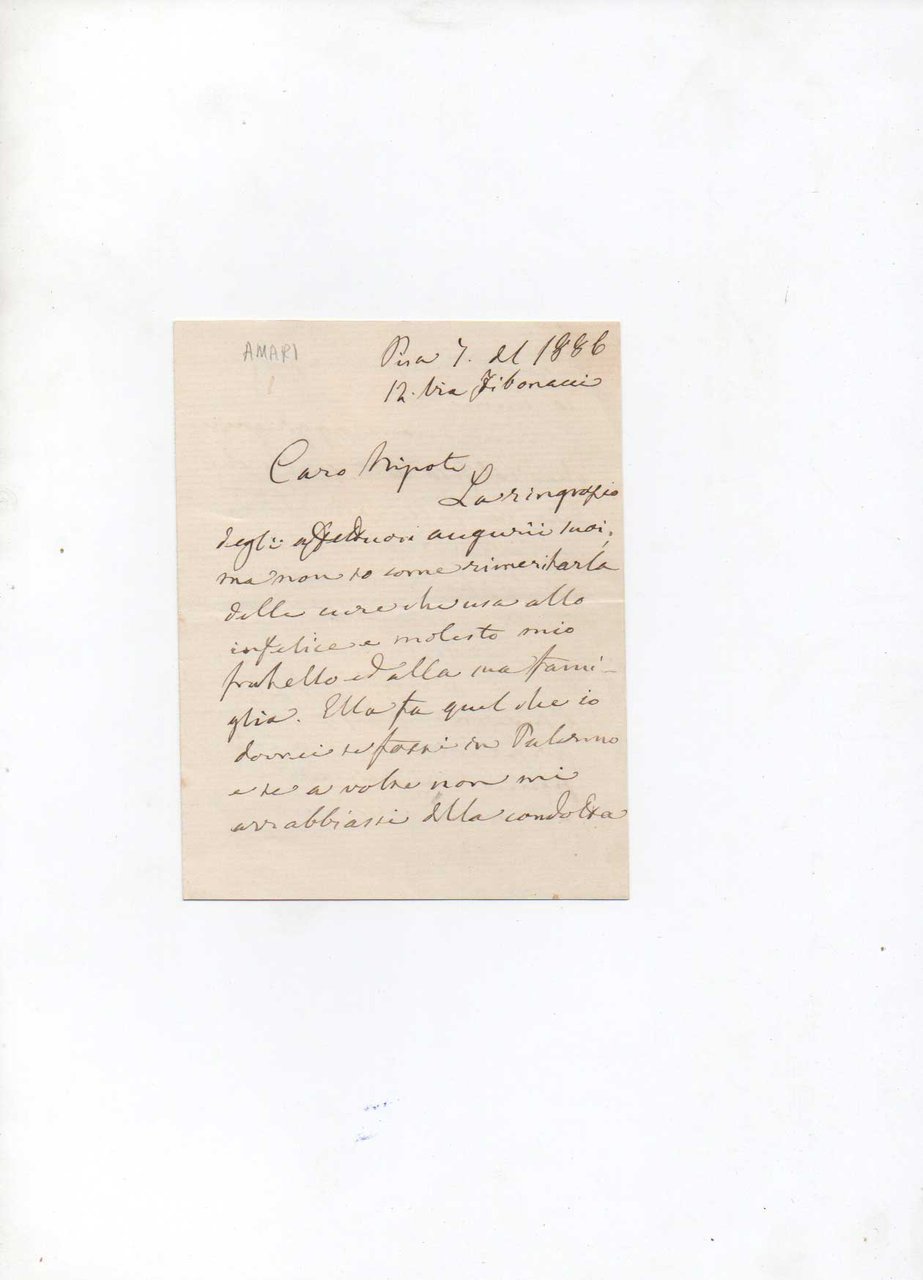 AMARI
Pisa 7. del 1886
12. Via Fibonacci
Caro Nipote
La ringrazio
degli affettuosi augurii suoi,
ma non so come rimeritarla
delle cure che usa allo
infelice e molesto mio
fratello ed alla sua fami-
glia. Ella fa quel che io
dovrei se fossi in Palermo
e se a volte non mi
arrabbiassi della condotta